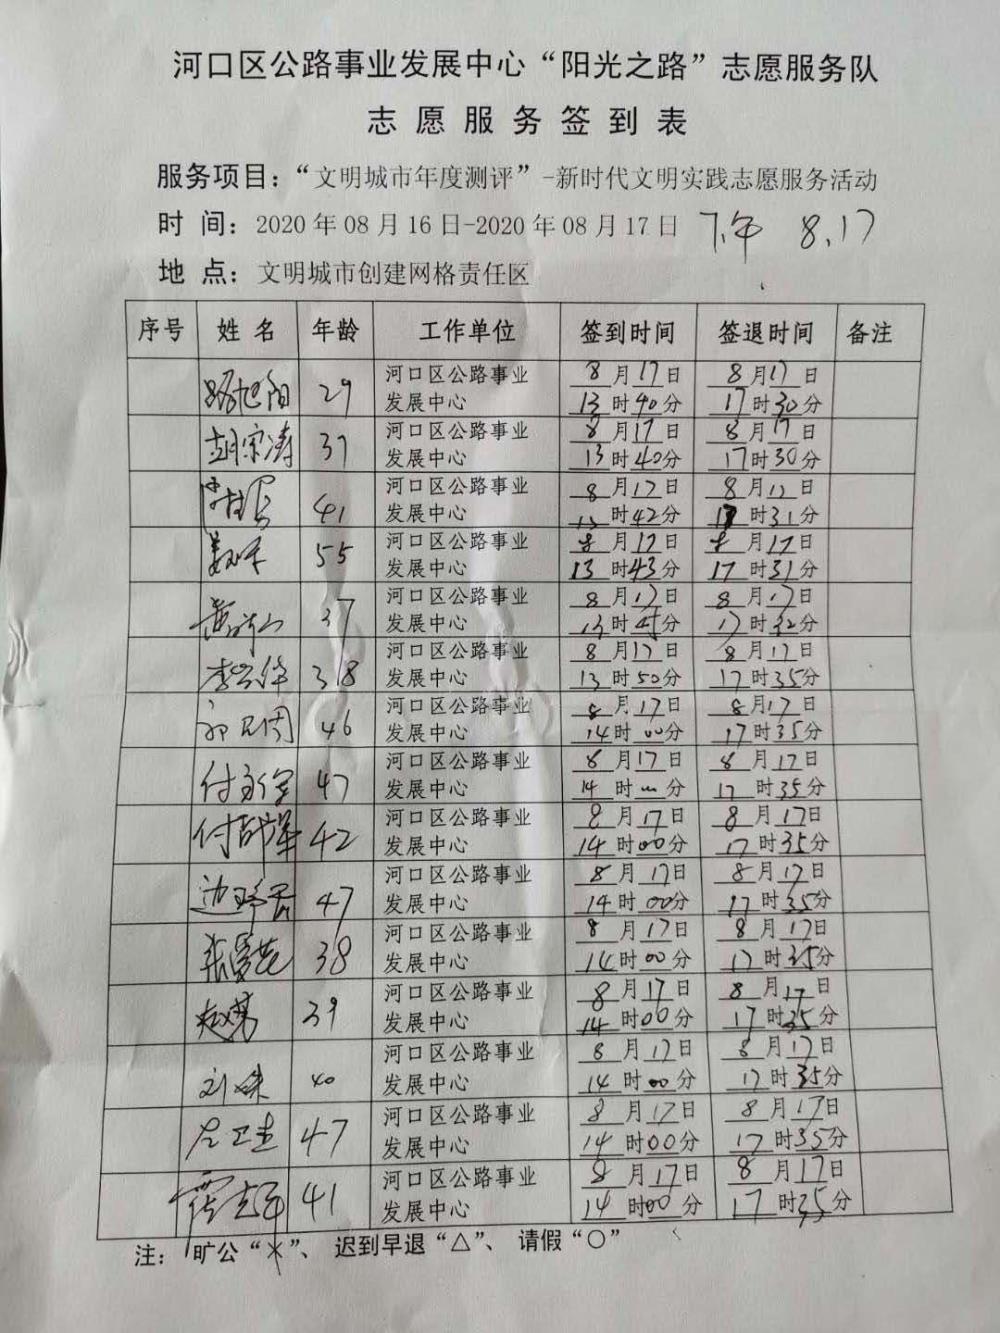 河口区公路事业发展中心“阳光之路”志愿服务队
志愿服务签到表
服务项目：“文明城市年度测评”-新时代文明实践志愿服务活动
时 间：2020年08月16日-2020年08月17日 下午 8.17
地 点：文明城市创建网格责任区
序号 姓名 年龄 工作单位 签到时间 签退时间 备注
路旭阳 29 河口区公路事业 8月17日 8月17日
发展中心 13时40分 17时30分
胡宗涛 37 河口区公路事业 8月17日 8月17日
发展中心 13时40分 17时30分
41 河口区公路事业 8月17日 8月17日
发展中心 13时42分 17时31分
55 河口区公路事业 8月17日 8月17日
发展中心 13时43分 17时31分
37 河口区公路事业 8月17日 8月17日
发展中心 13时45分 17时32分
38 河口区公路事业 8月17日 8月17日
发展中心 13时50分 17时35分
46 河口区公路事业 8月17日 8月17日
发展中心 14时00分 17时35分
47 河口区公路事业 8月17日 8月17日
发展中心 14时分 17时35分
42 河口区公路事业 8月17日 8月17日
发展中心 14时00分 17时35分
47 河口区公路事业 8月17日 8月17日
发展中心 14时00分 17时35分
38 河口区公路事业 8月17日 8月17日
发展中心 14时00分 17时35分
39 河口区公路事业 8月17日 8月17日
发展中心 14时00分 17时35分
40 河口区公路事业 8月17日 8月17日
发展中心 14时00分 17时35分
47 河口区公路事业 8月17日 8月17日
发展中心 14时00分 17时35分
41 河口区公路事业 8月17日 8月17日
发展中心 14时00分 17时35分
注： 旷公“×”、 迟到早退“△”、 请假“○”